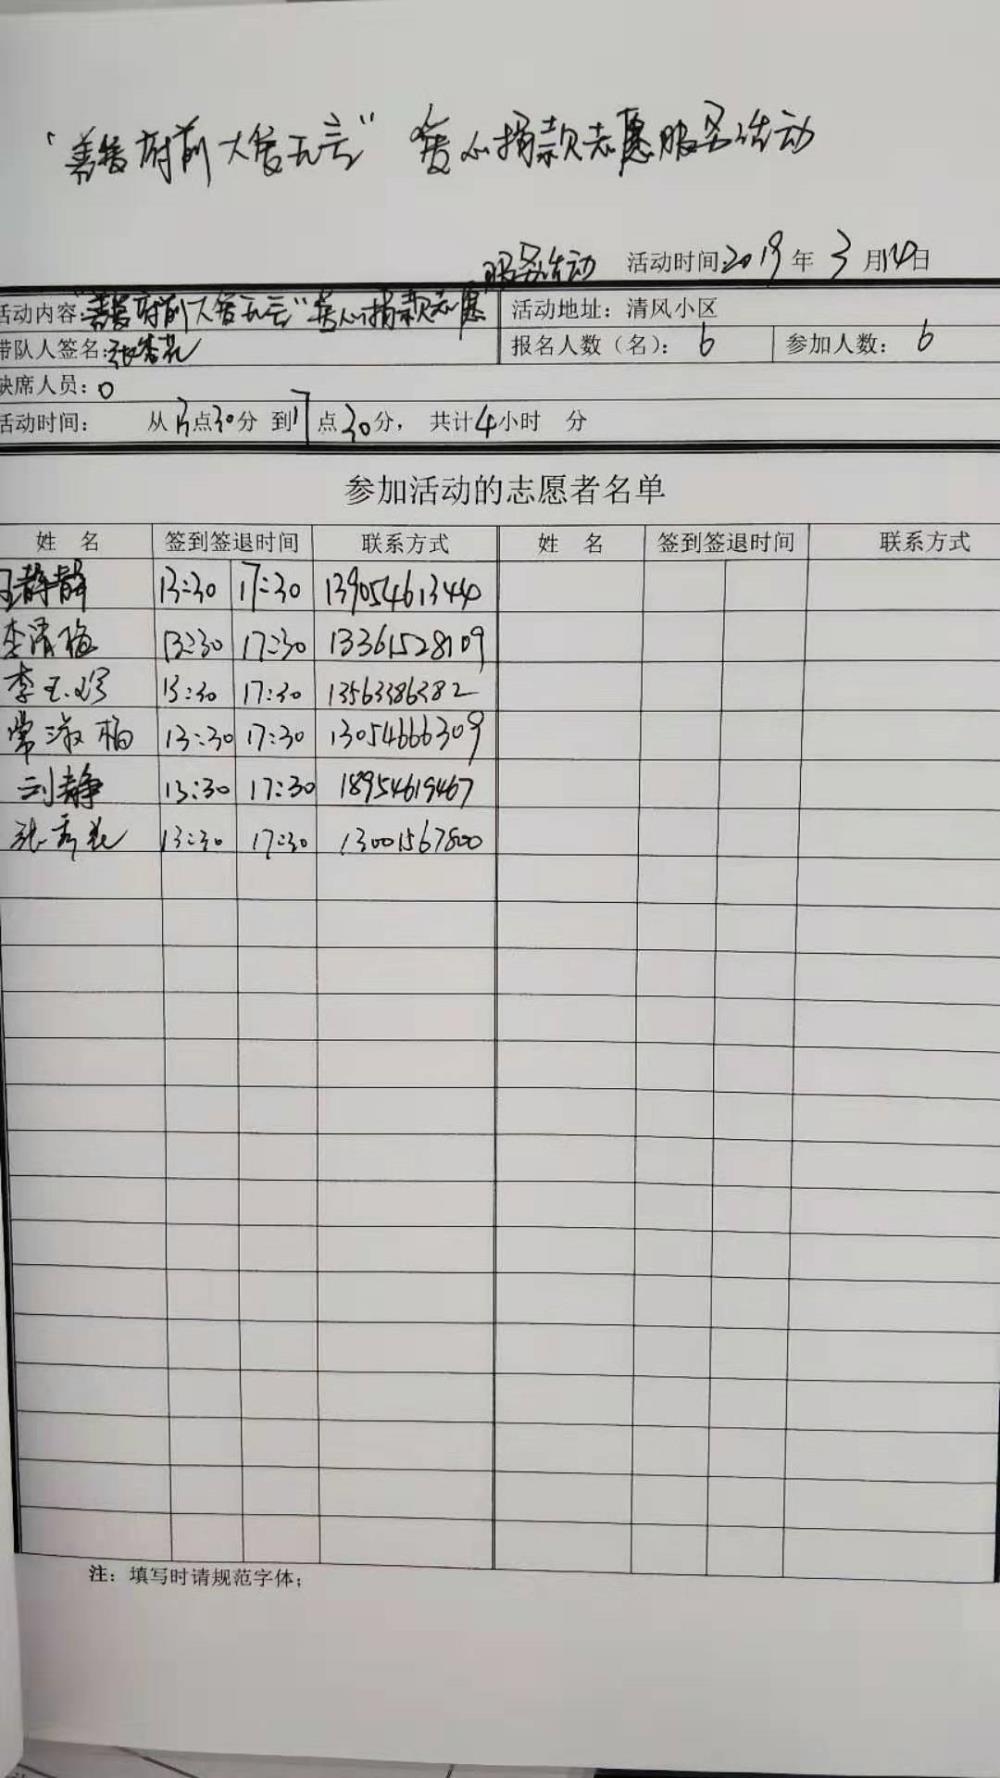 "善 府前 大爱无言" 爱心捐款志愿服务活动
服务活动 活动时间2019年3月14日
活动内容:"善 府前 大爱无言"爱心捐款志愿 活动地址：清风小区
带队人签名: 报名人数（名）：6 参加人数：6
缺席人员：0
活动时间： 从13点30分 到17点30分， 共计4小时 分
参加活动的志愿者名单
姓 名 签到签退时间 联系方式 姓 名 签到签退时间 联系方式
王静静 13:30 17:30 139054613440
李清梅 13:30 17:30 13361528109
李玉珍 13:30 17:30 13563386382
常淑梅 13:30 17:30 13054666309
刘静 13:30 17:30 18954619467
张秀花 13:30 17:30 13001567800
注：填写时请规范字体；